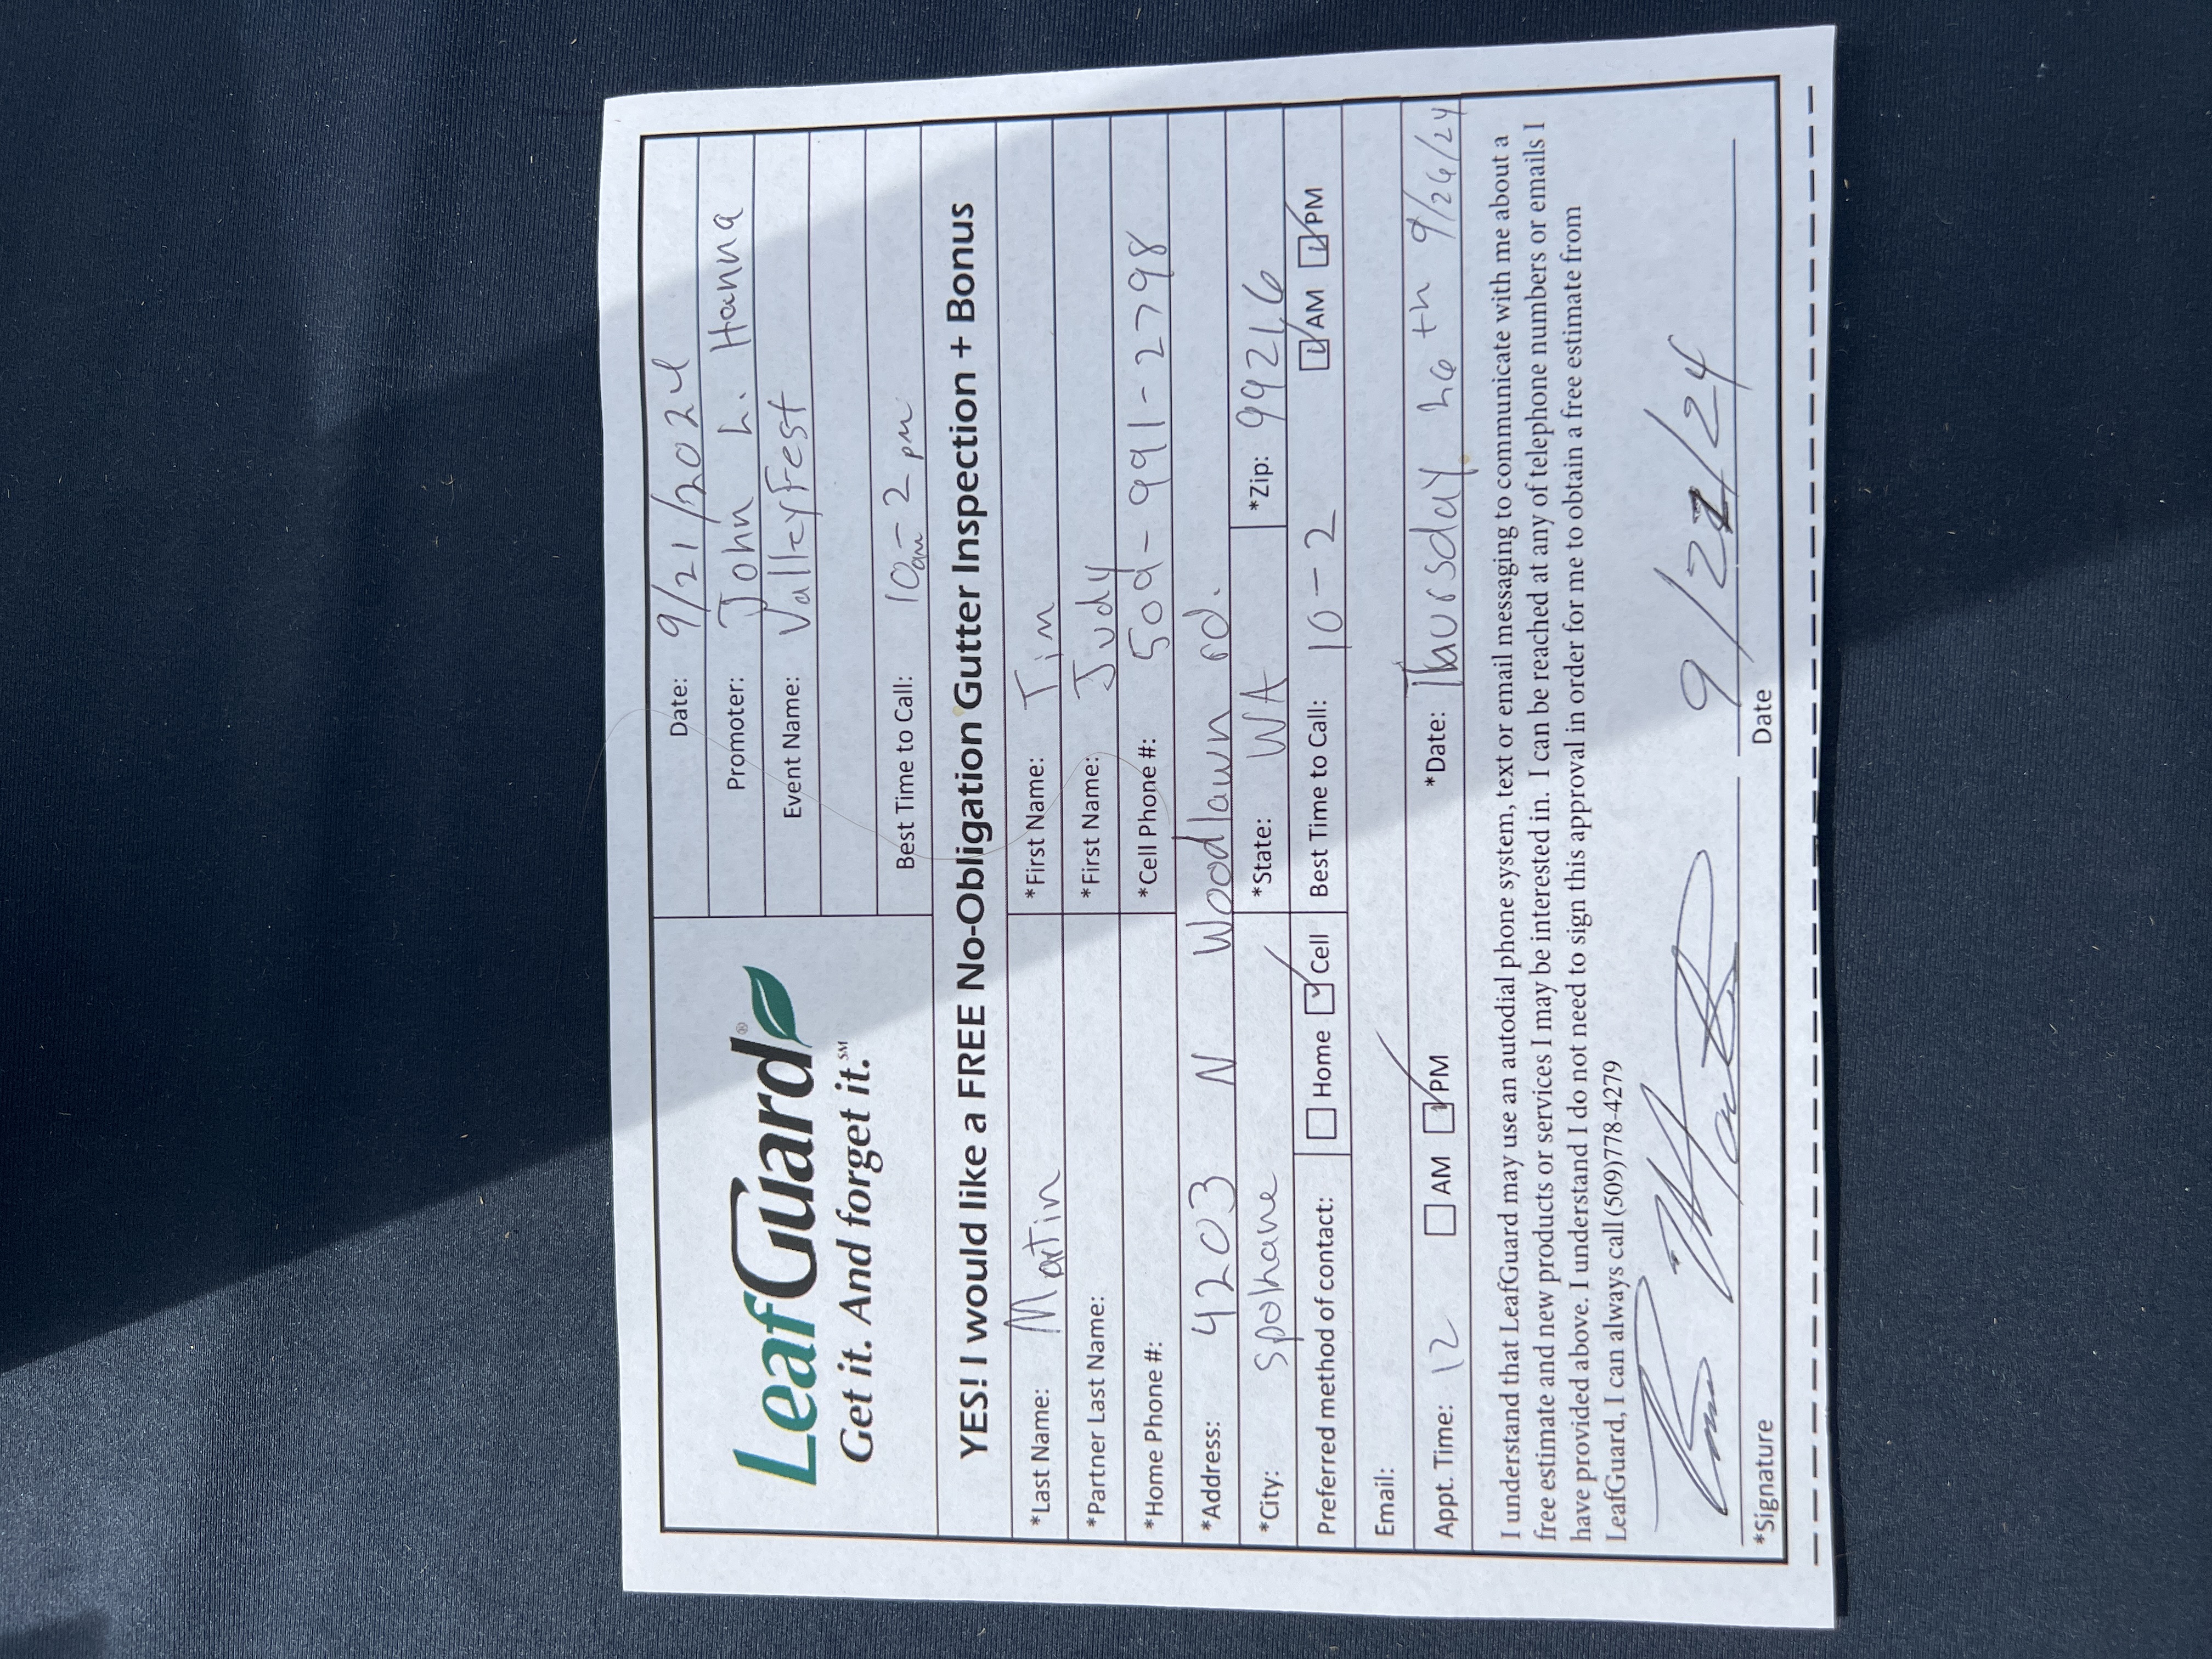 Date: 9/21/2024
Promoter: John L. Hanna
LeafGuard®
Get it. And forget it.℠
Event Name: ValleyFest
Best Time to Call: 10am - 2 pm
YES! I would like a FREE No-Obligation Gutter Inspection + Bonus
*Last Name: Martin *First Name: Tim
*Partner Last Name: *First Name: Judy
*Home Phone #: *Cell Phone #: 509-991-2798
*Address: 4203 N Woodlawn rd.
*City: Spokane *State: WA *Zip: 99216
Preferred method of contact: Home Cell Best Time to Call: 10-2 AM PM
Email:
Appt. Time: 12 AM PM *Date: Thursday 26th 9/26/24
I understand that LeafGuard may use an autodial phone system, text or email messaging to communicate with me about a
free estimate and new products or services I may be interested in. I can be reached at any of telephone numbers or emails I
have provided above. I understand I do not need to sign this approval in order for me to obtain a free estimate from
LeafGuard, I can always call (509)778-4279
9/21/24
*Signature Date